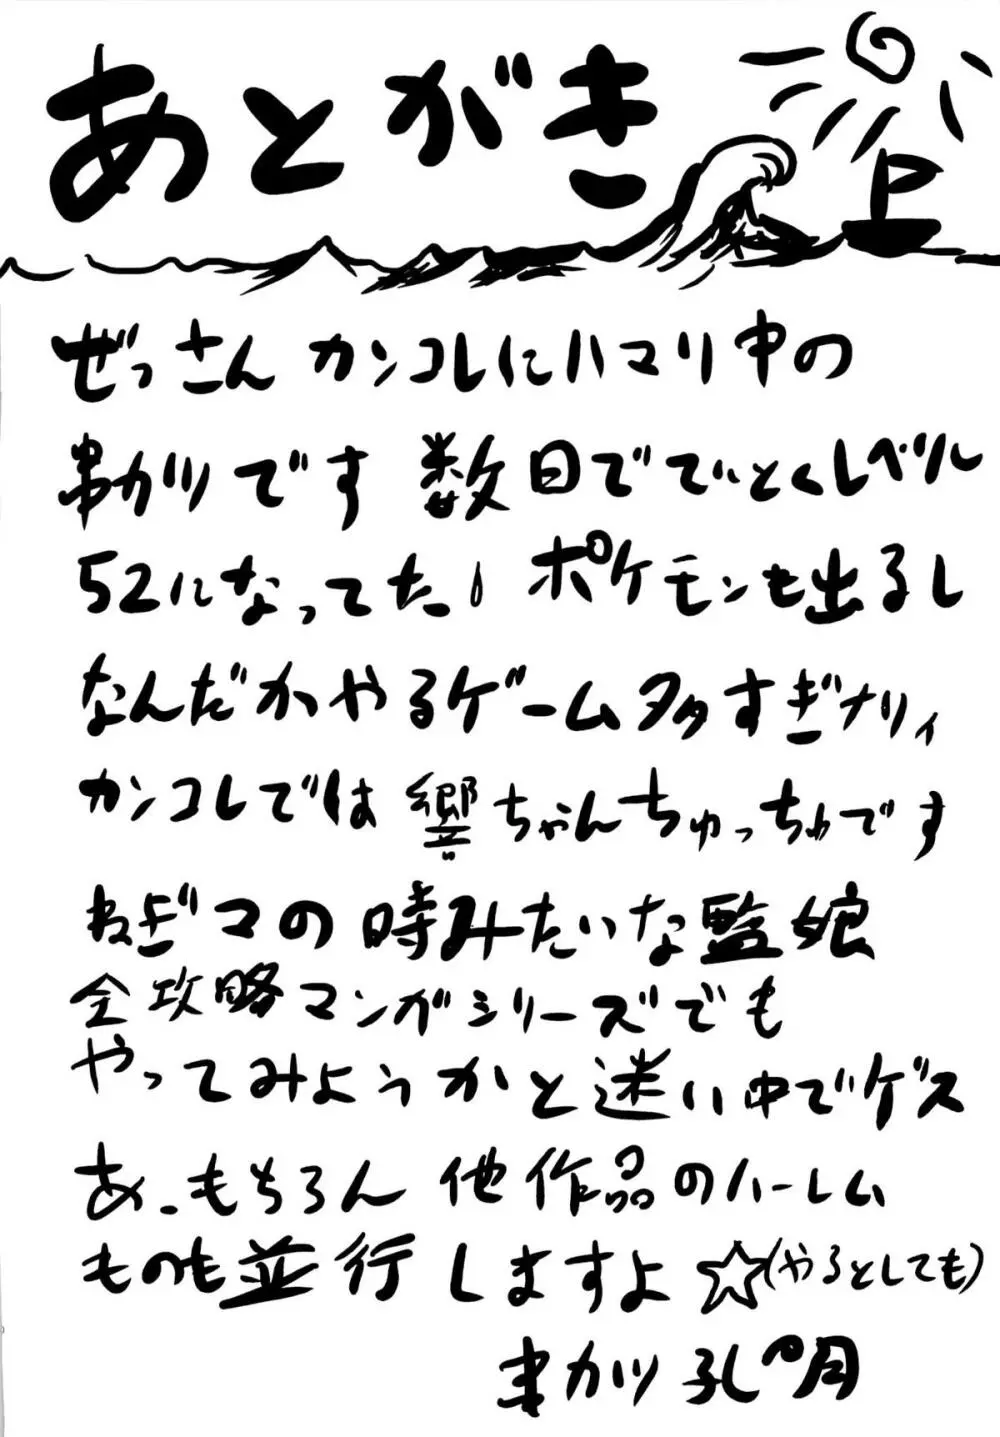 あとがき
ぜっさんカンコレにハマり中の
串カツです 数日でていとくレベル
52になってた! ポケモンも出るし
なんだかやるゲーム多すぎナリィ
カンコレでは 響ちゃんちゅっちゅです
ねぎマの時みたいな監娘
全攻略マンガシリーズでも
やってみようかと迷い中でゲス
あ、もちろん 他作品のハーレム
ものも並行しますよ☆(やるとしても)
串カツ 孔明